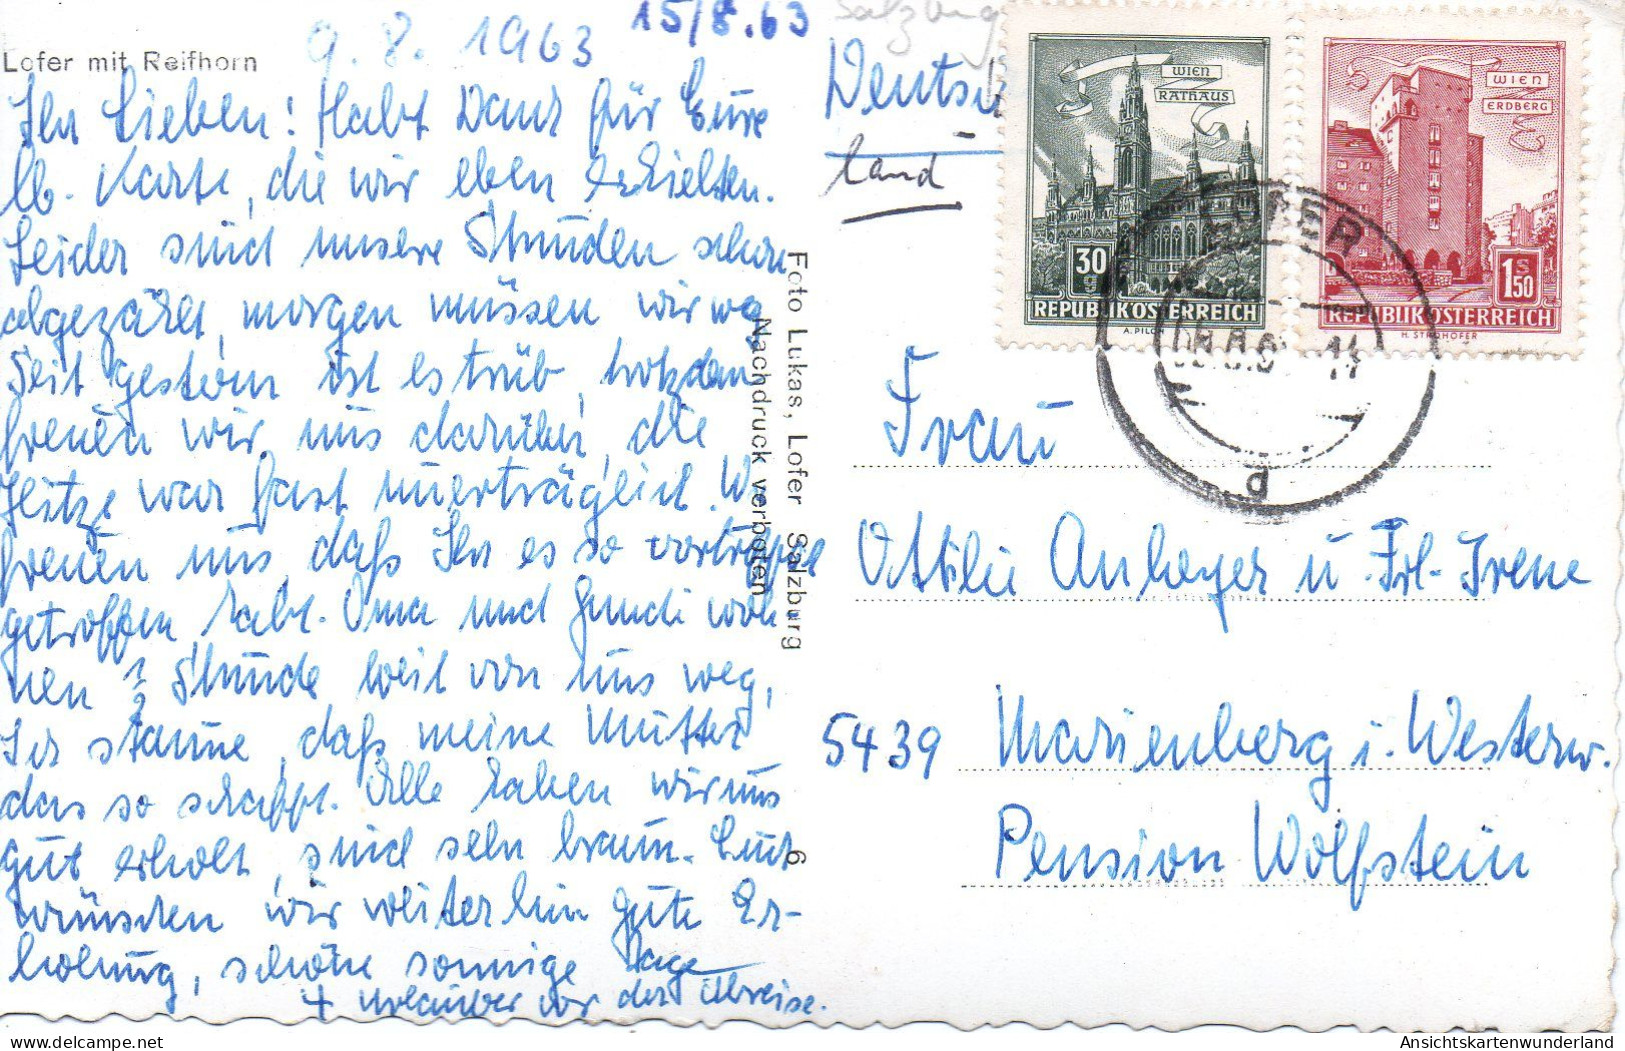 Lofer mit Reifhorn
9. 8. 1963
15/8.63
Salzburg
Ihr Lieben! Habt Dank für Eure
lb. Karte, die wir eben erhielten.
Leider sind unsere Stunden schon
abgezählt, morgen müssen wir weg
Seit gestern ist es trüb, trotzdem
freuen wir uns darüber, die
Hitze war fast unerträglich. Wir
freuen uns, daß Ihr es so vortrefflich
getroffen habt. Oma und Gundi woh-
nen ½ Stunde weit von uns weg,
Ich staune, daß meine Mutter
das so schafft. Alle haben wir uns
gut erholt, sind sehr braun. Euch
wünschen wir weiterhin gute Er-
holung, schöne sonnige Tage
+ Urlauber vor der Abreise.
Foto Lukas, Lofer Salzburg
Nachdruck verboten
6
Deutsch
land
WIEN
RATHAUS
30
g
REPUBLIK ÖSTERREICH
A. PILCH
WIEN
ERDBERG
S
1.50
REPUBLIK ÖSTERREICH
H. STROHOFER
LOFER
d
Frau
Ottilie Anheyer u. Frl. Irene
5439 Marienberg i. Westerw.
Pension Wolfstein
AnsichtskartenWunderland